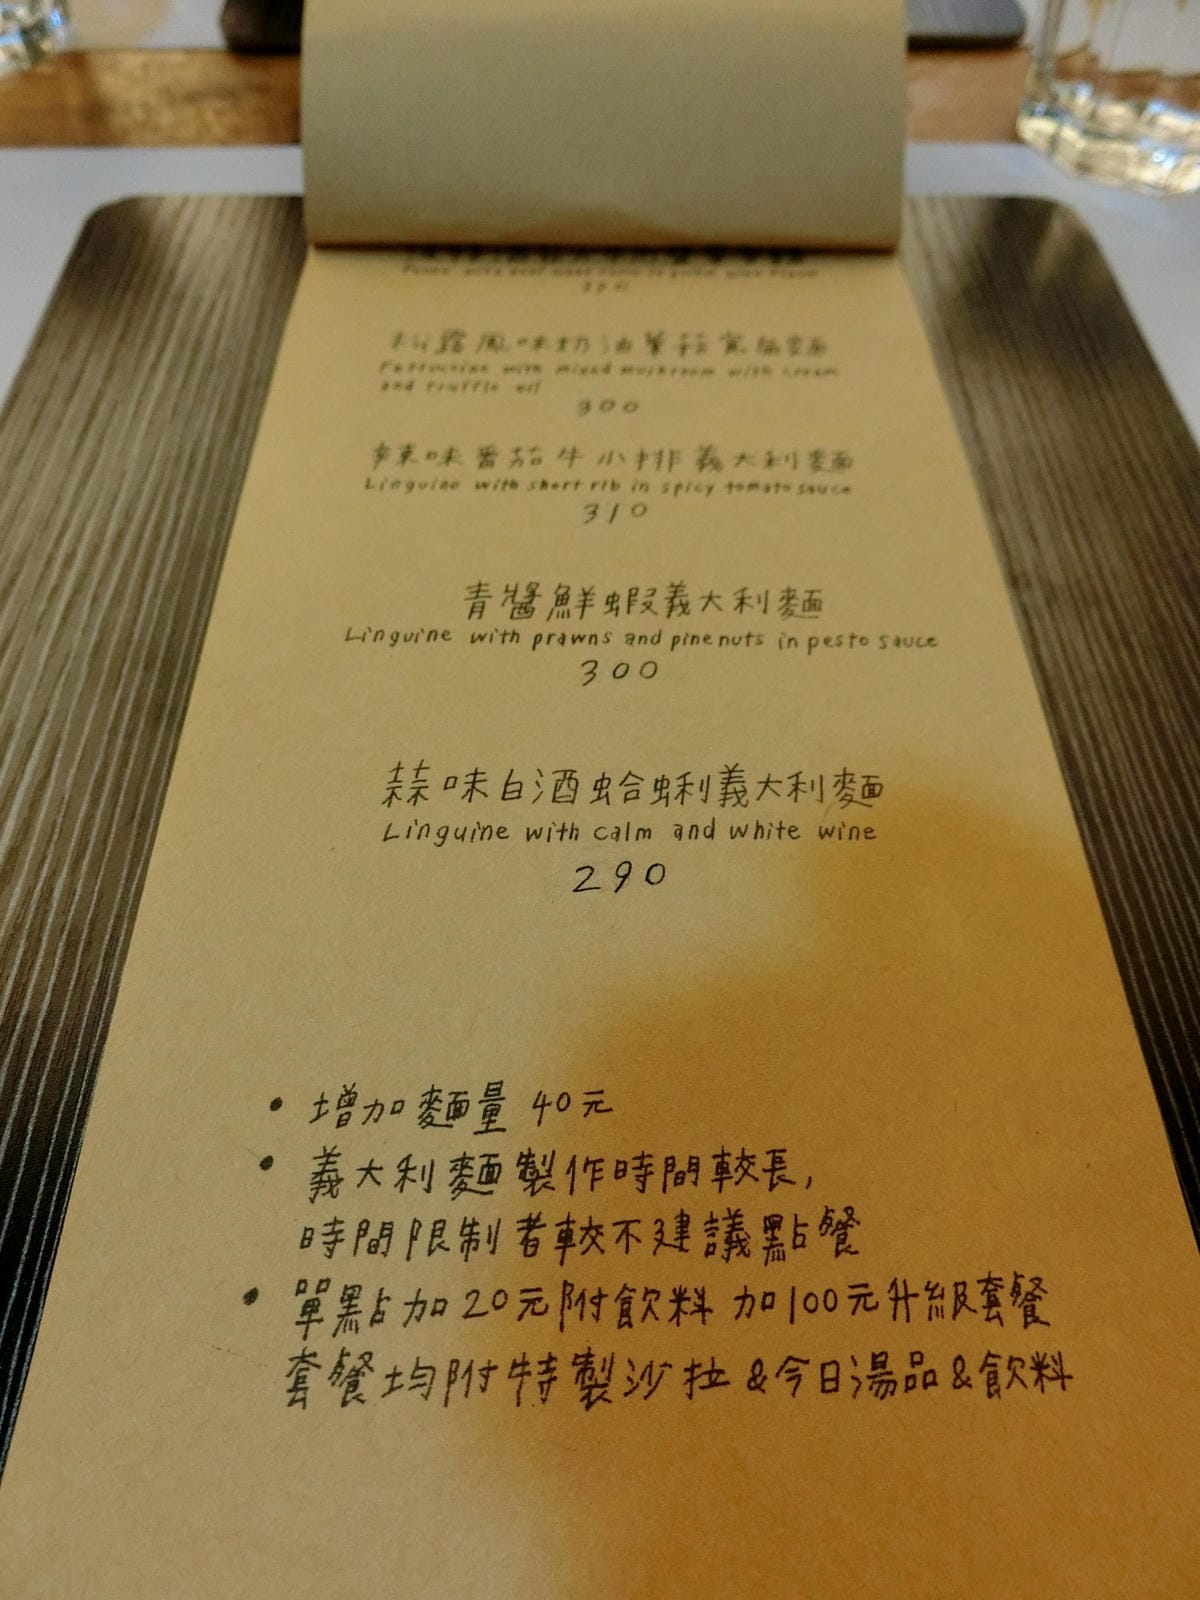 松露風味奶油蕈菇寬扁麵
Fettuccine with mixed mushroom with cream
and truffle oil
300
辣味番茄牛小排義大利麵
Linguine with short rib in spicy tomato sauce
310
青醬鮮蝦義大利麵
Linguine with prawns and pinenuts in pesto sauce
300
蒜味白酒蛤蜊義大利麵
Linguine with calm and white wine
290
• 增加麵量 40元
• 義大利麵製作時間較長,
時間限制者較不建議點餐
• 單點加20元附飲料 加100元升級套餐
套餐均附特製沙拉&今日湯品&飲料